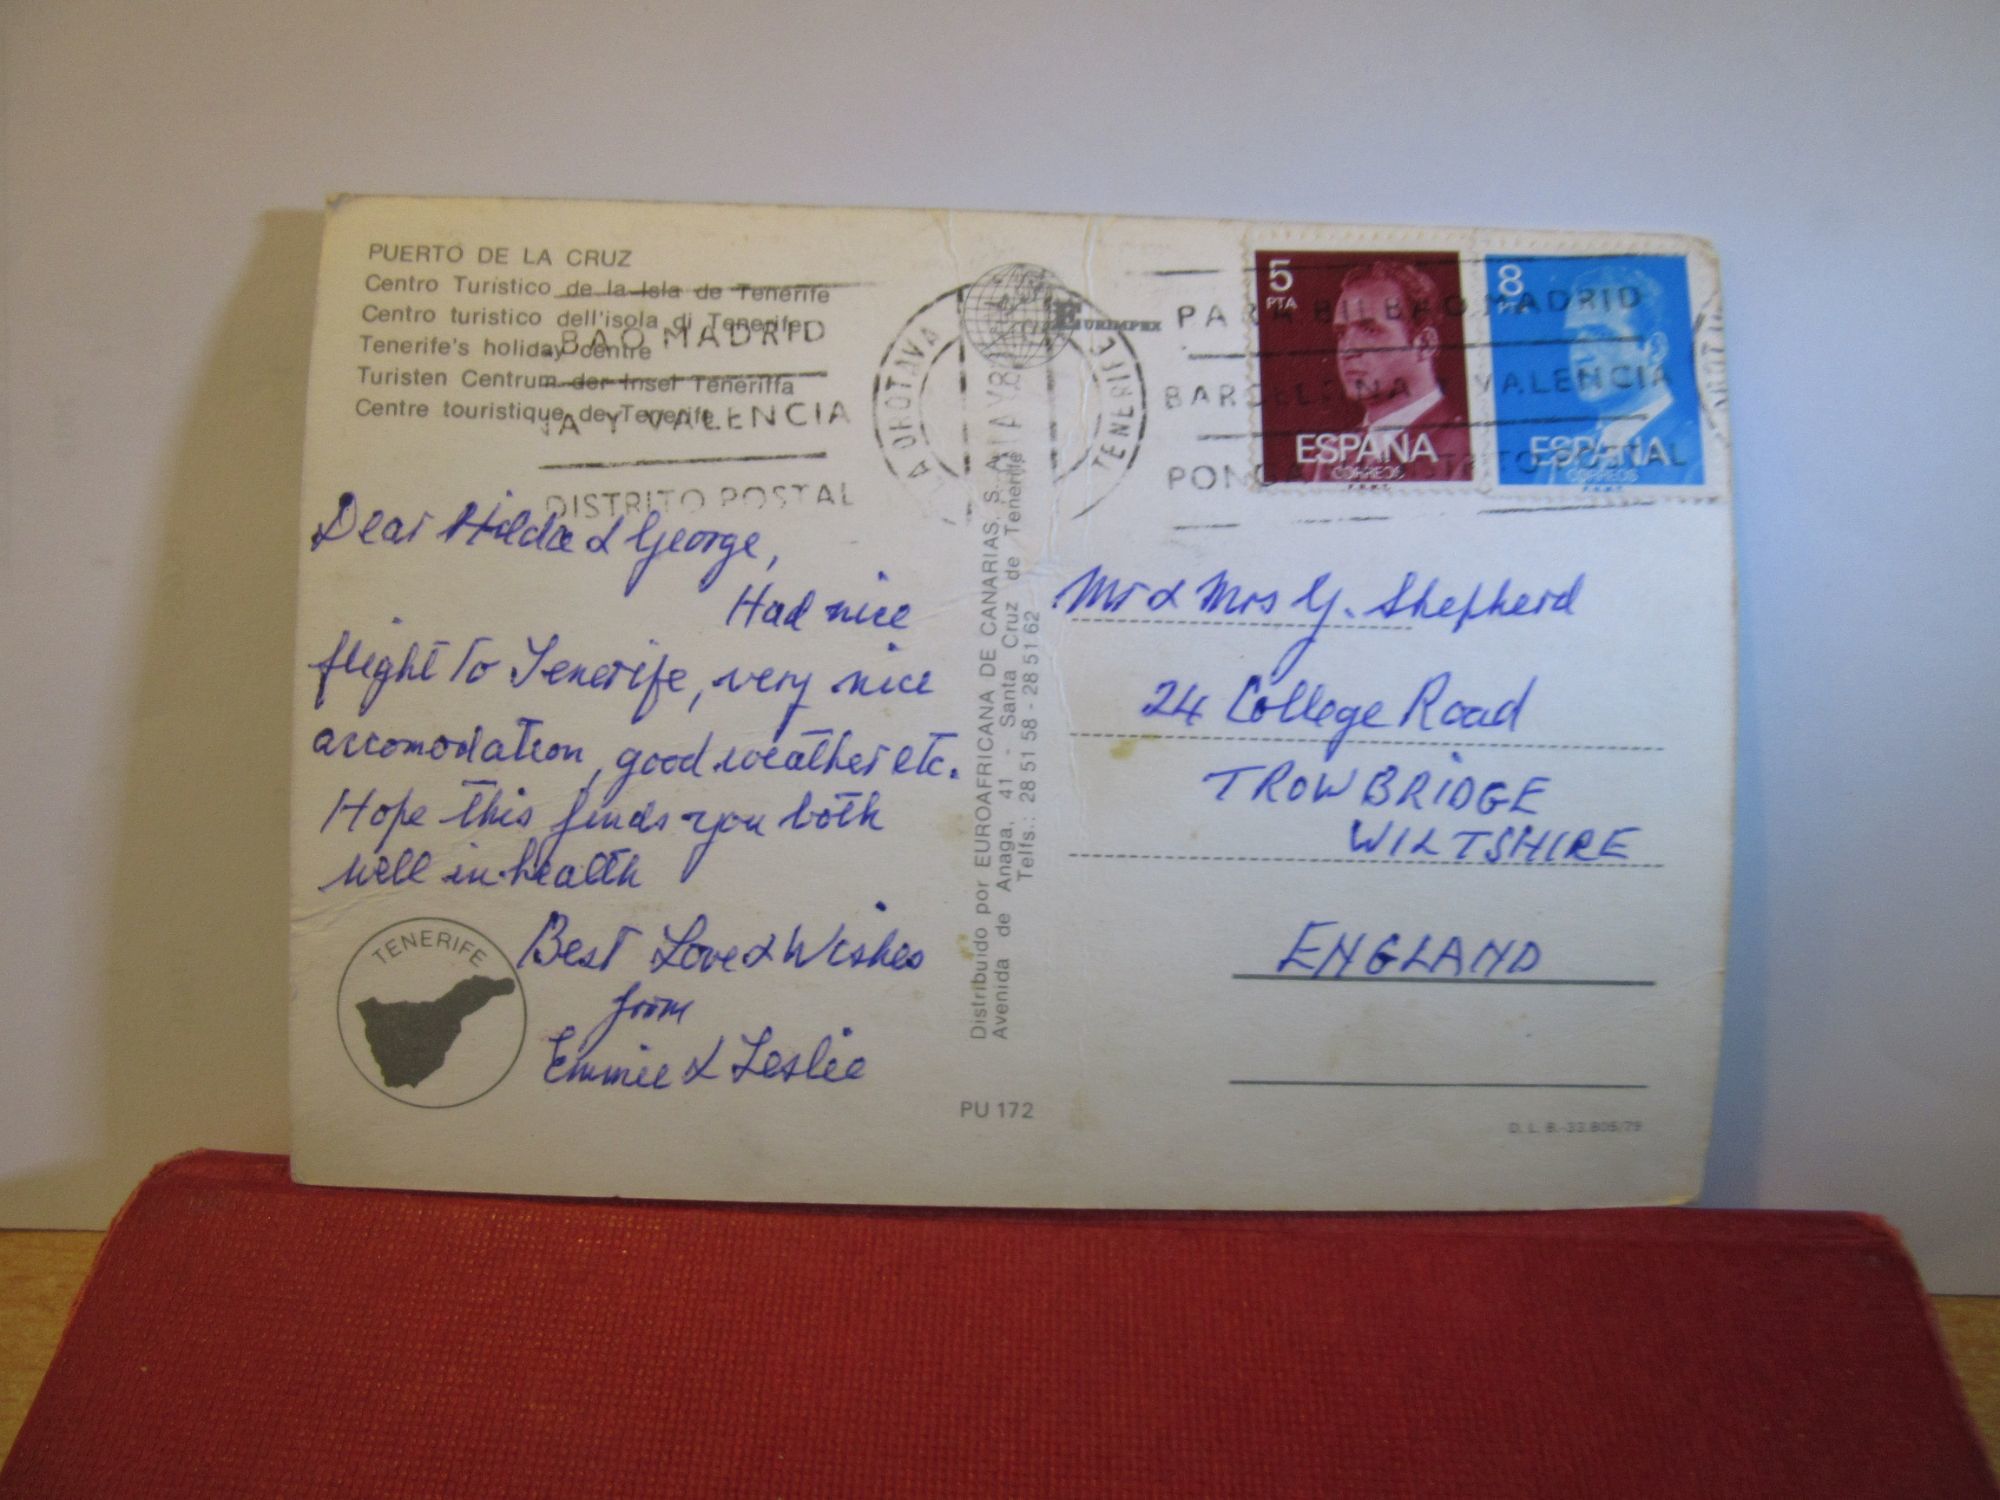 PUERTO DE LA CRUZ
Centro Turístico de la Isla de Tenerife
Centro turistico dell'isola di Tenerife
Tenerife's holiday centre
Turisten Centrum der Insel Teneriffa
Centre touristique de Tenerife
BAO, MADRID
NA Y VALENCIA
DISTRITO POSTAL
LA OROTAVA
TENERIFE
EURIMPEX
PARA BILBAO, MADRID
BARCELONA Y VALENCIA
PONGA DISTRITO POSTAL
5
PTA
ESPAÑA
CORREOS
F.N.M.T.
8
PTA
ESPAÑA
CORREOS
F.N.M.T.
Dear Hilda & George,
Had nice
flight to Tenerife, very nice
accomodation, good weather etc.
Hope this finds you both
well in health
Best Love & Wishes
from
Emmie & Leslie
TENERIFE
Distribuido por EUROAFRICANA DE CANARIAS, S. A.
Avenida de Anaga, 41 - Santa Cruz de Tenerife
Telfs.: 28 51 58 - 28 51 62
PU 172
Mr & Mrs G. Shepherd
24 College Road
TROWBRIDGE
WILTSHIRE
ENGLAND
D. L. B.-33.805/79